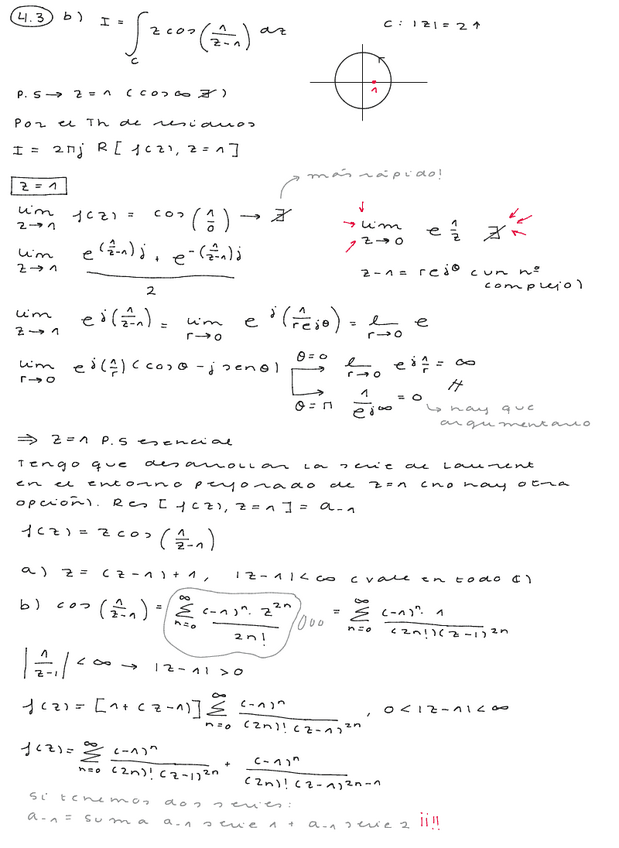 4.3 b) I = ∫_C z cos(1/(z-1)) dz    C: |z| = 2 ↑
1
P.S → z = 1 (cos ∞ ∄)
Por el Th de residuos
I = 2πj R[f(z), z=1]
más rápido!
z = 1
lim z→1 f(z) = cos(1/0) → ∄    lim z→0 e^(1/z) ∄
lim z→1 (e^(1/(z-1))j + e^-(1/(z-1))j)/2    z-1 = re^jθ (un nº complejo)
lim z→1 e^j(1/(z-1)) = lim r→0 e^j(1/(re^jθ)) = l r→0 e
lim r→0 e^j(1/r)(cosθ - j senθ)    θ=0 l r→0 e^j(1/r) = ∞
θ=π 1/e^j∞ = 0 hay que argumentarlo
⇒ z=1 P.S esencial
Tengo que desarrollar la serie de Laurent
en el entorno perforado de z=1 (no hay otra
opción). Res[f(z), z=1] = a-1
f(z) = z cos(1/(z-1))
a) z = (z-1)+1, |z-1|<∞ (vale en todo ℂ)
b) cos(1/(z-1)) = ∑ n=0 ∞ (-1)^n · z^2n / 2n! = ∑ n=0 ∞ (-1)^n · 1 / (2n!)(z-1)^2n
|1/(z-1)| < ∞ → |z-1| > 0
f(z) = [1+(z-1)] ∑ n=0 ∞ (-1)^n / (2n)! (z-1)^2n , 0<|z-1|<∞
f(z) = ∑ n=0 ∞ (-1)^n / (2n)! (z-1)^2n + (-1)^n / (2n)! (z-1)^2n-1
Si tenemos dos series:
a-1 = suma a-1 serie 1 + a-1 serie 2 ¡¡!!